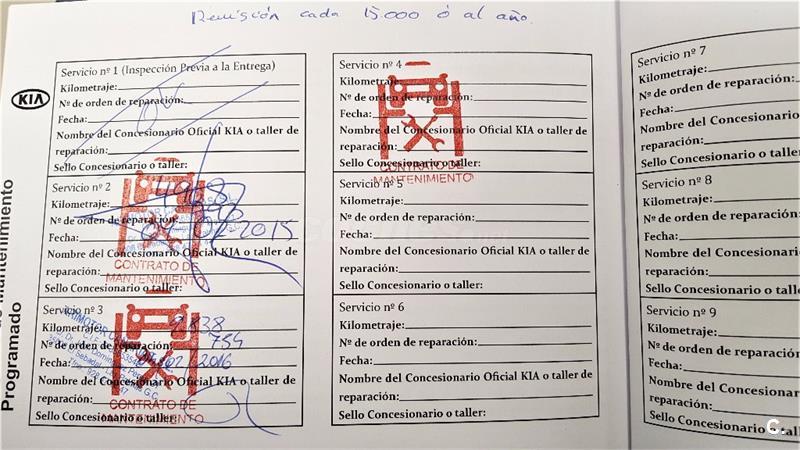 Revisión cada 15.000 ó al año.
KIA
Programado
Servicio nº 1 (Inspección Previa a la Entrega)
Kilometraje:
Nº de orden de reparación:
Fecha:
Nombre del Concesionario Oficial KIA o taller de
reparación:
Sello Concesionario o taller:
Servicio nº 2
Kilometraje:
Nº de orden de reparación:
Fecha: 2015
Nombre del Concesionario Oficial KIA o taller de
reparación:
CONTRATO DE
MANTENIMIENTO
Sello Concesionario o taller:
Servicio nº 3
Kilometraje: 9.838
Nº de orden de reparación: 754
Fecha: 02 2016
Nombre del Concesionario Oficial KIA o taller de
reparación:
CONTRATO DE
MANTENIMIENTO
Sello Concesionario o taller:
Servicio nº 4
Kilometraje:
Nº de orden de reparación:
Fecha:
Nombre del Concesionario Oficial KIA o taller de
reparación:
Sello Concesionario o taller:
CONTRATO DE
MANTENIMIENTO
Servicio nº 5
Kilometraje:
Nº de orden de reparación:
Fecha:
Nombre del Concesionario Oficial KIA o taller de
reparación:
Sello Concesionario o taller:
Servicio nº 6
Kilometraje:
Nº de orden de reparación:
Fecha:
Nombre del Concesionario Oficial KIA o taller de
reparación:
Sello Concesionario o taller:
Servicio nº 7
Kilometraje:
Nº de orden de reparación:
Fecha:
Nombre del Concesionario
reparación:
Sello Concesionario o taller:
Servicio nº 8
Kilometraje:
Nº de orden de reparación:
Fecha:
Nombre del Concesionario
reparación:
Sello Concesionario o
Servicio nº 9
Kilometraje:
Nº de orden de reparación:
Fecha:
Nombre del Concesionario
reparación:
Sello Concesionario o